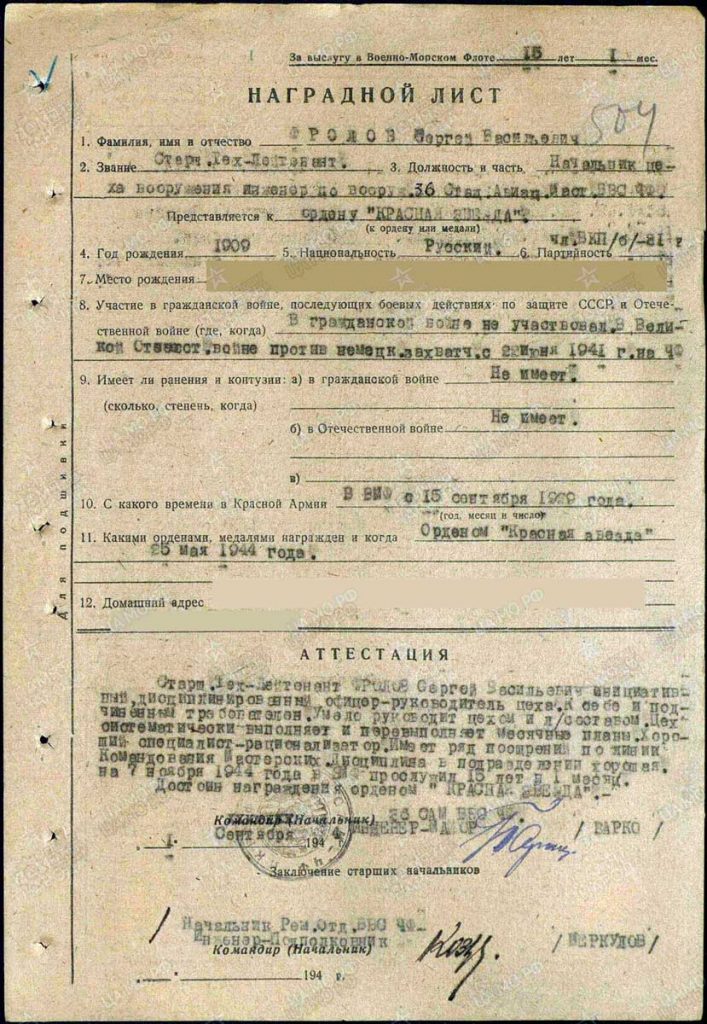 За выслугу в Военно-Морском Флоте 15 лет 1 мес.
НАГРАДНОЙ ЛИСТ
504
1. Фамилия, имя и отчество ФРОЛОВ Сергей Васильевич
2. Звание Старш.Тех-Лейтенант. 3. Должность и часть Начальник це-
ха вооружения инженер по вооруж.36 Стац.Авиац.Маст.ВВС ЧФ.
Представляется к ордену "КРАСНАЯ ЗВЕЗДА".
(к ордену или медали)
4. Год рождения 1909 5. Национальность Русский. 6. Партийность чл.ВКП/б/-31 г
7. Место рождения
8. Участие в гражданской войне, последующих боевых действиях по защите СССР и Отече-
ственной войне (где, когда) В гражданской войне не участвовал.В Вели-
кой Отечест.войне против немецк.захватч.с 22 июня 1941 г.на ЧФ
9. Имеет ли ранения и контузии: а) в гражданской войне Не имеет.
(сколько, степень, когда)
б) в Отечественной войне Не имеет.
в)
10. С какого времени в Красной Армии В ВМФ с 15 сентября 1929 года.
(год, месяц и число)
11. Какими орденами, медалями награжден и когда Орденом "Красная звезда"
25 мая 1944 года.
12. Домашний адрес
Для подшивки
АТТЕСТАЦИЯ
Старш.Тех-Лейтенант ФРОЛОВ Сергей Васильевич инициатив-
ный,дисциплинированный офицер-руководитель цеха.К себе и под-
чиненным требователен.Умело руководит цехом и л/составом.Цех
систематически выполняет и перевыполняет месячные планы.Хоро-
ший специалист-рационализатор.Имеет ряд поощрений по линии
Командования Мастерских.Дисциплина в подразделении хорошая.
на 7 ноября 1944 года в ВМФ прослужил 15 лет и 1 месяц.
Достоин награждения орденом " КРАСНАЯ ЗВЕЗДА".-
36 САМ ВВС ЧФ
Командир (Начальник) ИНЖЕНЕР-МАЙОР / ВАРКО /
1 Сентября 1944 г.
Заключение старших начальников
Начальник Рем.Отд.ВВС ЧФ
Инженер-Подполковник
Командир (Начальник) /МЕРКУЛОВ/
194 г.